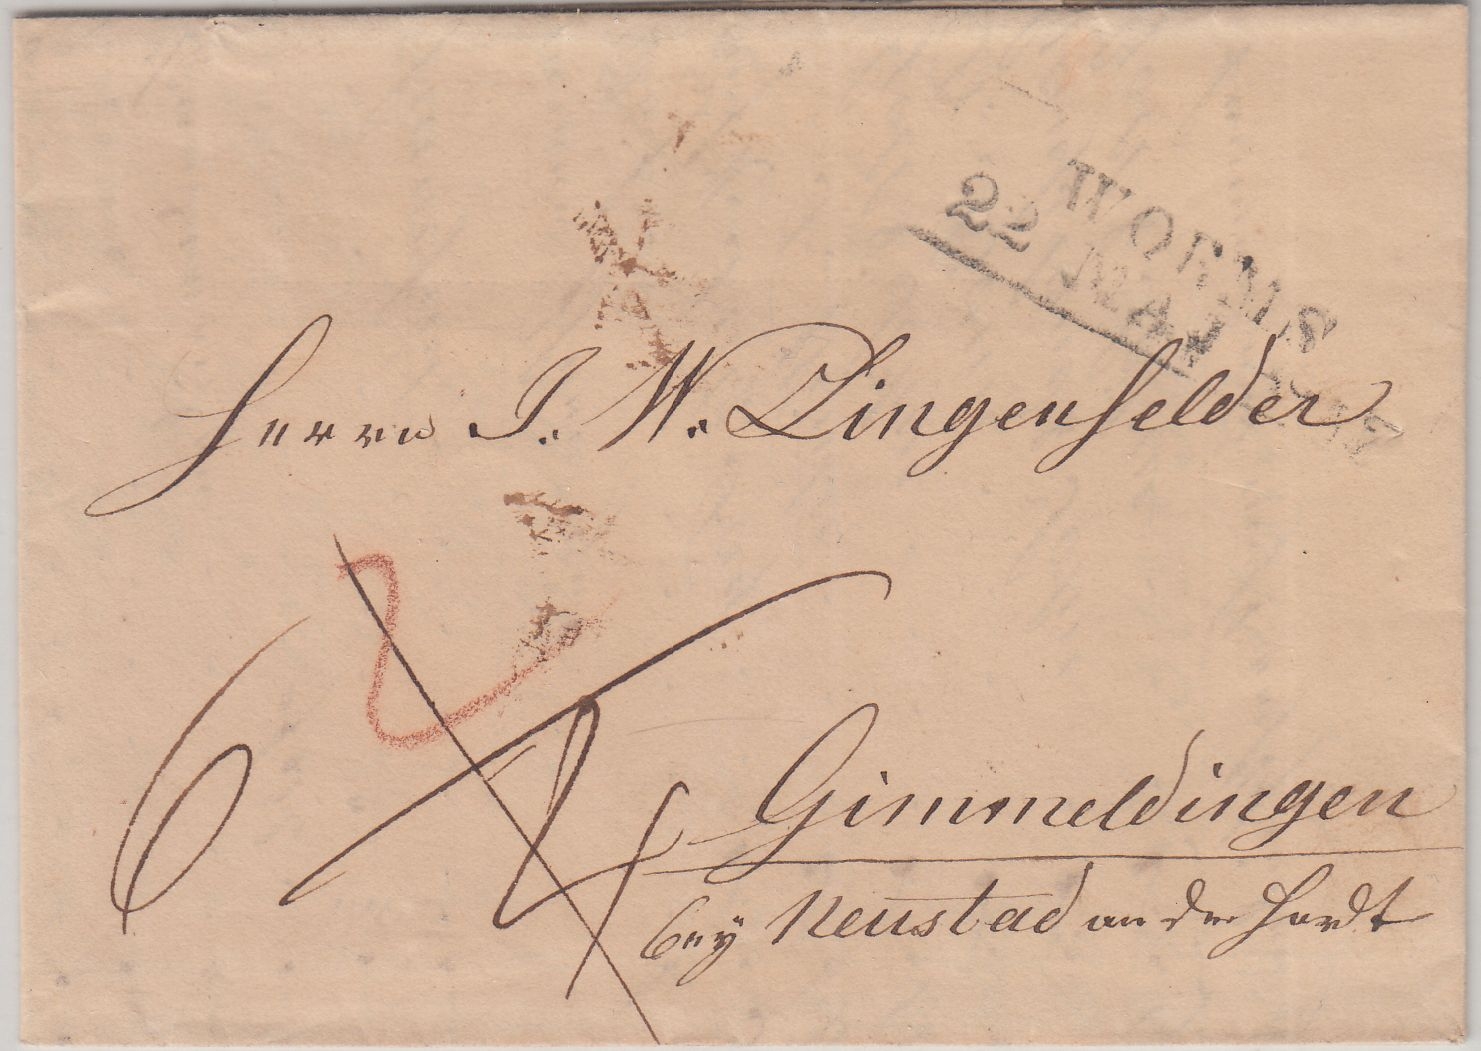 WORMS
22 MAI
Herrn J. W. Lingenfelder
2
6
Gimmeldingen
bey Neustad an der Hardt